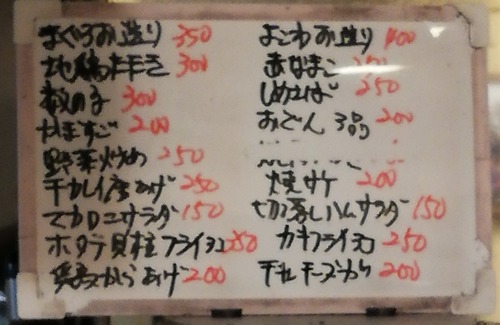 まぐろお造り 350
地鶏 300
数の子 300
200
野菜炒め 250
干カレイ唐あげ 250
マカロニサラダ 150
ホタテ貝柱フライ 250
からあげ 200
よこわお造り 400
赤なまこ
しめさば 250
おでん 3品 200
焼サケ 200
切落しハムサラダ 150
カキフライ 250
200